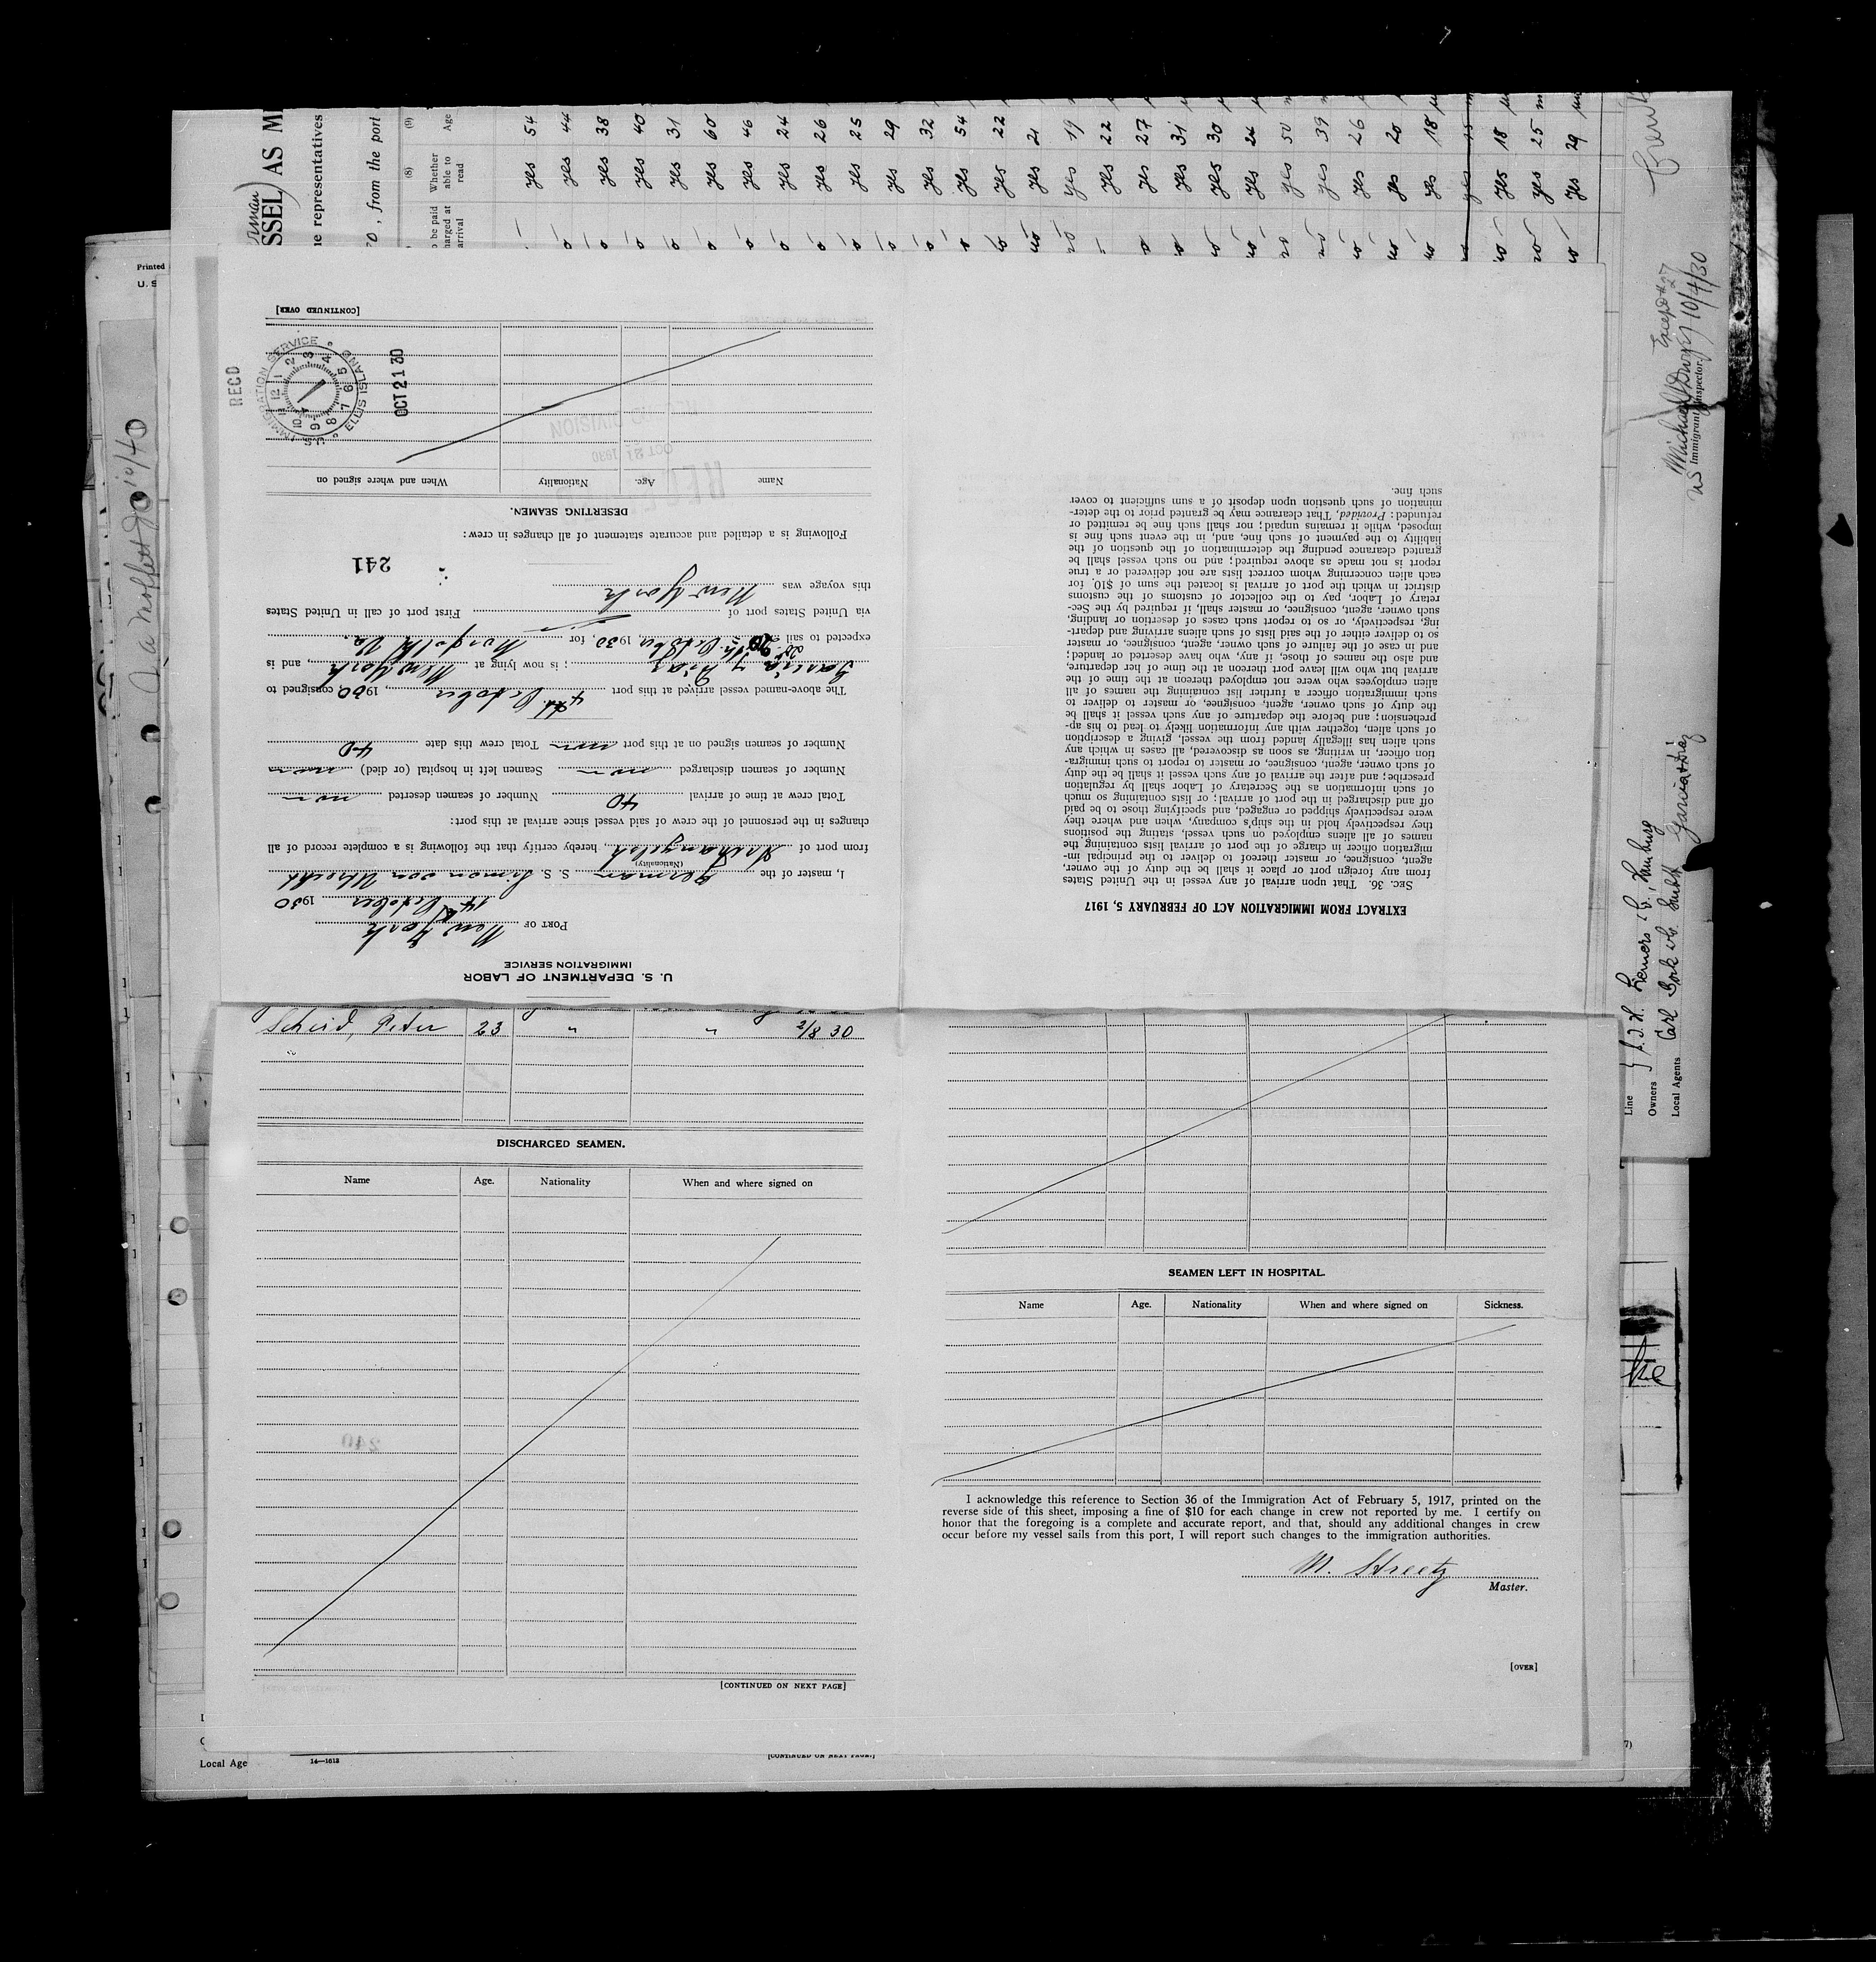 U. S. DEPARTMENT OF LABOR
IMMIGRATION SERVICE
PORT OF New York
14th October 1930
I, master of the german S. S. Simon von Utrecht
(Nationality)
from port of Archangelsk hereby certify that the following is a complete record of all
changes in the personnel of the crew of said vessel since arrival at this port:
Total crew at time of arrival 40 Number of seamen deserted non
Number of seamen discharged non Seamen left in hospital (or died) non
Number of seamen signed on at this port non Total crew this date 40
The above-named vessel arrived at this port 4th October, 1930, consigned to
Garcia y Diaz; is now lying at New York, and is
expected to sail October, 1930, for Norfolk Va.
via United States port of First port of call in United States
this voyage was New York
241
Following is a detailed and accurate statement of all changes in crew:
DESERTING SEAMEN.
Name Age. Nationality When and where signed on
[CONTINUED OVER]
RECD
U.S. IMMIGRATION SERVICE
ELLIS ISLAND
OCT 21 30
EXTRACT FROM IMMIGRATION ACT OF FEBRUARY 5, 1917
SEC. 36. That upon arrival of any vessel in the United States
from any foreign port or place it shall be the duty of the owner,
agent, consignee, or master thereof to deliver to the principal im-
migration officer in charge of the port of arrival lists containing the
names of all aliens employed on such vessel, stating the positions
they respectively hold in the ship's company, when and where they
were respectively shipped or engaged, and specifying those to be paid
off and discharged in the port of arrival; or lists containing so much
of such information as the Secretary of Labor shall by regulation
prescribe; and after the arrival of any such vessel it shall be the duty
of such owner, agent, consignee, or master to report to such immigra-
tion officer, in writing, as soon as discovered, all cases in which any
such alien has illegally landed from the vessel, giving a description
of such alien, together with any information likely to lead to his ap-
prehension; and before the departure of any such vessel it shall be
the duty of such owner, agent, consignee, or master to deliver to
such immigration officer a further list containing the names of all
alien employees who were not employed thereon at the time of the
arrival but who will leave port thereon at the time of her departure,
and also the names of those, if any, who have deserted or landed;
and in case of the failure of such owner, agent, consignee, or master
so to deliver either of the said lists of such aliens arriving and depart-
ing, respectively, or so to report such cases of desertion or landing,
such owner, agent, consignee, or master shall, if required by the Sec-
retary of Labor, pay to the collector of customs of the customs
district in which the port of arrival is located the sum of $10. for
each alien concerning whom correct lists are not delivered or a true
report is not made as above required; and no such vessel shall be
granted clearance pending the determination of the question of the
liability to the payment of such fine, and, in the event such fine is
imposed, while it remains unpaid; nor shall such fine be remitted or
refunded: Provided, That clearance may be granted prior to the deter-
mination of such question upon deposit of a sum sufficient to cover
such fine.
Scheid, Peter 23 " " 2/8 30
DISCHARGED SEAMEN.
Name Age. Nationality When and where signed on
[CONTINUED ON NEXT PAGE]
SEAMEN LEFT IN HOSPITAL.
Name Age. Nationality When and where signed on Sickness.
I acknowledge this reference to Section 36 of the Immigration Act of February 5, 1917, printed on the
reverse side of this sheet, imposing a fine of $10 for each change in crew not reported by me. I certify on
honor that the foregoing is a complete and accurate report, and that, should any additional changes in crew
occur before my vessel sails from this port, I will report such changes to the immigration authorities.
M. Streetz
Master.
[OVER]
Local Age
14—1613
[CONTINUED ON NEXT PAGE.]
Printed
U. S
SSEL) AS M
e representatives
30, from the port
(8) (9)
be paid
harged at
arrival
Whether
able to
read
Age
yes 54
yes 44
yes 38
yes 40
yes 31
yes 60
yes 46
yes 24
yes 26
yes 25
yes 29
yes 32
yes 54
yes 22
yes 21
yes 19
yes 22
yes 27
yes 31
yes 30
yes 24
yes 50
yes 39
yes 26
yes 20
yes 18
yes 18
yes 25
yes 29
Except #27
10/4/30
Immigrant Inspector.
Line
Owners
Local Agents
Garcia & Diaz